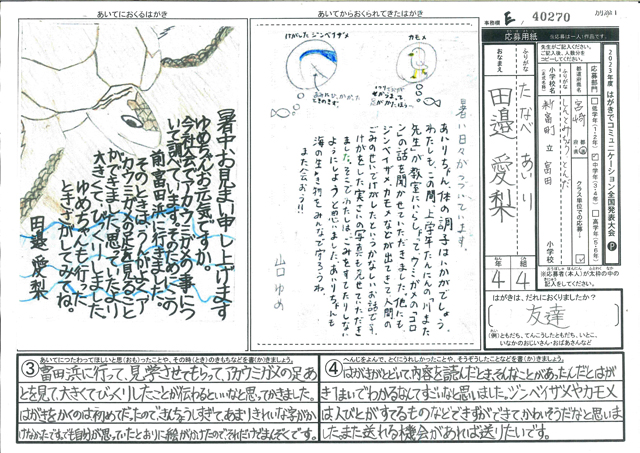 あいてにおくるはがき
暑中お見まい申し上げます
ゆめちゃんお元気ですか。
今社会でアカウミガメの事につ
いて調べています。そのためにこの
前富田浜に行きました。
そのときはうんがよくア
カウミガメの足を見ること
ができました。思っていたより
大きくてびっくりしました。
ゆめちゃんも行った
ときさがしてみてね。
田邉 愛梨
あいてからおくられてきたはがき
けがしたジンベイザメ
カモメ
暑い日々がつづいてます。
あいりちゃん、体の調子はいかがでしょう。
わたしも、この間、上学年たんにんの「川また
先生」が教室にいらしって、ウミガメの「コロ
ン」の話を聞かせていただきました。他にも、
ジンベイザメ、カモメなどが出てきて人間の
ごみのせいでけがしたというかなしいお話です。
けがをした実さいの写真も見せていただき
ました。そこでわたしは、ごみをすてたりしない
ようにしようと思いました。あいりちゃんも
海の生き物をみんなで守ろうね。
また会おう!!
山口 ゆめ
事務欄 E, 40270
別添1
応募用紙
※応募は一人1作品です。
2023年度 はがきでコミュニケーション全国発表大会
先生がご記入ください。
ご記入後、人数分を
コピーしてください。
応募部門
低学年(1・2年)
中学年(3・4年)
高学年(5・6年)
都道府県名
宮崎
小学校名
(正式名称)
ふりがな
しんとみちょうりつ とんだ
新富町立 富田
小学校
クラス単位での応募
ふりがな
たなべ あいり
おなまえ
田邉 愛梨
4年
4組
※応募者(本人)が太枠の中の
はがきは、だれにおくりましたか?
友達
(例)ともだち、てんこうしたともだち、いとこ、
いなかのおじいさん・おばあさんなど
③ あいてにつたわってほしいと思(おも)ったことや、その時(とき)のきもちなどを書(か)きましょう。
富田浜に行って、見学させてもらって、アカウミガメの足あ
とを見て大きくてびっくりしたことが伝わるといいなと思ってかきました。
はがきをかくのは初めてだったのできんちょうしすぎて、あまりきれいな字がか
けなかったです。でも自分が思っていたとおりに絵がかけたので、それだけでまんぞくです。
④ へんじをよんで、とくにうれしかったことや、そうぞうしたことなどを書(か)きましょう。
はがきがとどいて、内容を読んだとき、そんなことがあったんだとはが
き1まいでわかるなんてすごいなと思いました。ジンベイザメやカモメ
は人びとがするものなどできずができて、かわいそうだなと思いま
した。また送れる機会があれば送りたいです。